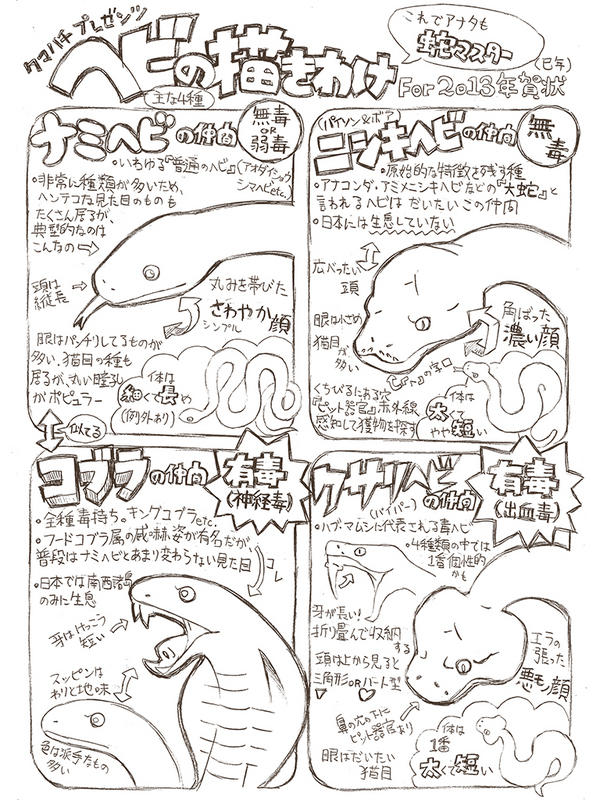 クマバチ プレゼンツ
ヘビの描きわけ
主な4種
これでアナタも
蛇マスター
(巳年)
For 2013年賀状
ナミヘビの仲間
無毒
OR
弱毒
・いわゆる『普通のヘビ』(アオダイショウ
シマヘビetc.)
・非常に種類が多いため、
ヘンテコな見た目のものも
たくさん居るが、
典型的なのは
こんなの
頭は
縦長
丸みを帯びた
さわやか顔
シンプル
眼はパッチリしてるものが
多い。猫目の種も
居るが、丸い瞳孔
がポピュラー
体は
細くて長め
(例外あり)
似てる
(パイソン&ボア)
ニシキヘビの仲間
無毒
・原始的な特徴を残す種
・アナコンダ、アミメニシキヘビなどの『大蛇』と
言われるヘビはだいたいこの仲間
・日本には生息していない
広べったい
頭
眼は小さめ
猫目
が
多い
角ばった
濃い顔
「へ」の字口
くちびるにある穴
『ピット器官』赤外線
感知して獲物を探す
体は
太くて
やや短い
コブラの仲間
有毒
(神経毒)
・全種毒持ち。キングコブラetc.
・フードコブラ属の威嚇姿が有名だが、
普段はナミヘビとあまり変わらない見た目
コレ
・日本では南西諸島
のみに生息
牙はけっこう
短い
スッピンは
わりと地味
色は派手なもの
多い
クサリヘビの仲間
(バイパー)
有毒
(出血毒)
・ハブ、マムシに代表される毒ヘビ
・4種類の中では
1番個性的
かも
牙が長い!
折り畳んで収納
する
頭は上から見ると
三角形ORハート型
エラの
張った
悪モノ顔
鼻の穴の下に
ピット器官あり
眼はだいたい
猫目
体は
1番
太くて短い